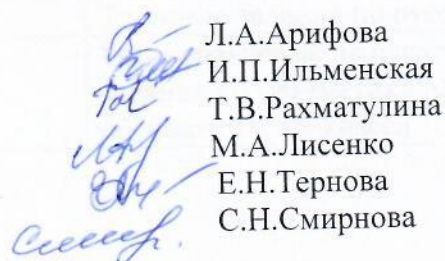 Л.А.Арифова
И.П.Ильменская
Т.В.Рахматулина
М.А.Лисенко
Е.Н.Тернова
С.Н.Смирнова